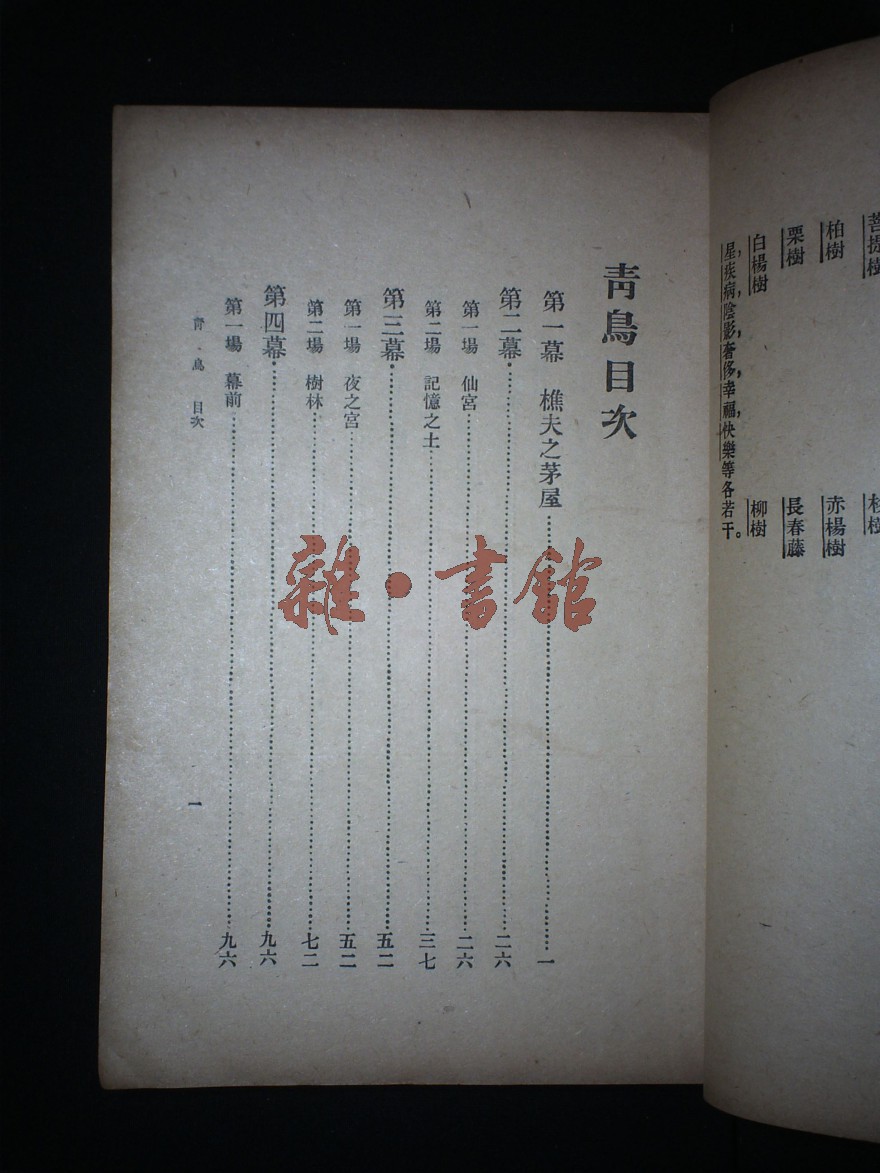 菩提樹
柏樹 赤楊樹
栗樹 長春藤
白楊樹 柳樹
星，疾病，陰影，奢侈，幸福，快樂等各若干。
青鳥目次
第一幕 樵夫之茅屋……一
第二幕……二六
第一場 仙宮……二六
第二場 記憶之土……三七
第三幕……五二
第一場 夜之宮……五二
第二場 樹林……七二
第四幕……九六
第一場 幕前……九六
青鳥 目次 一
雜·書館